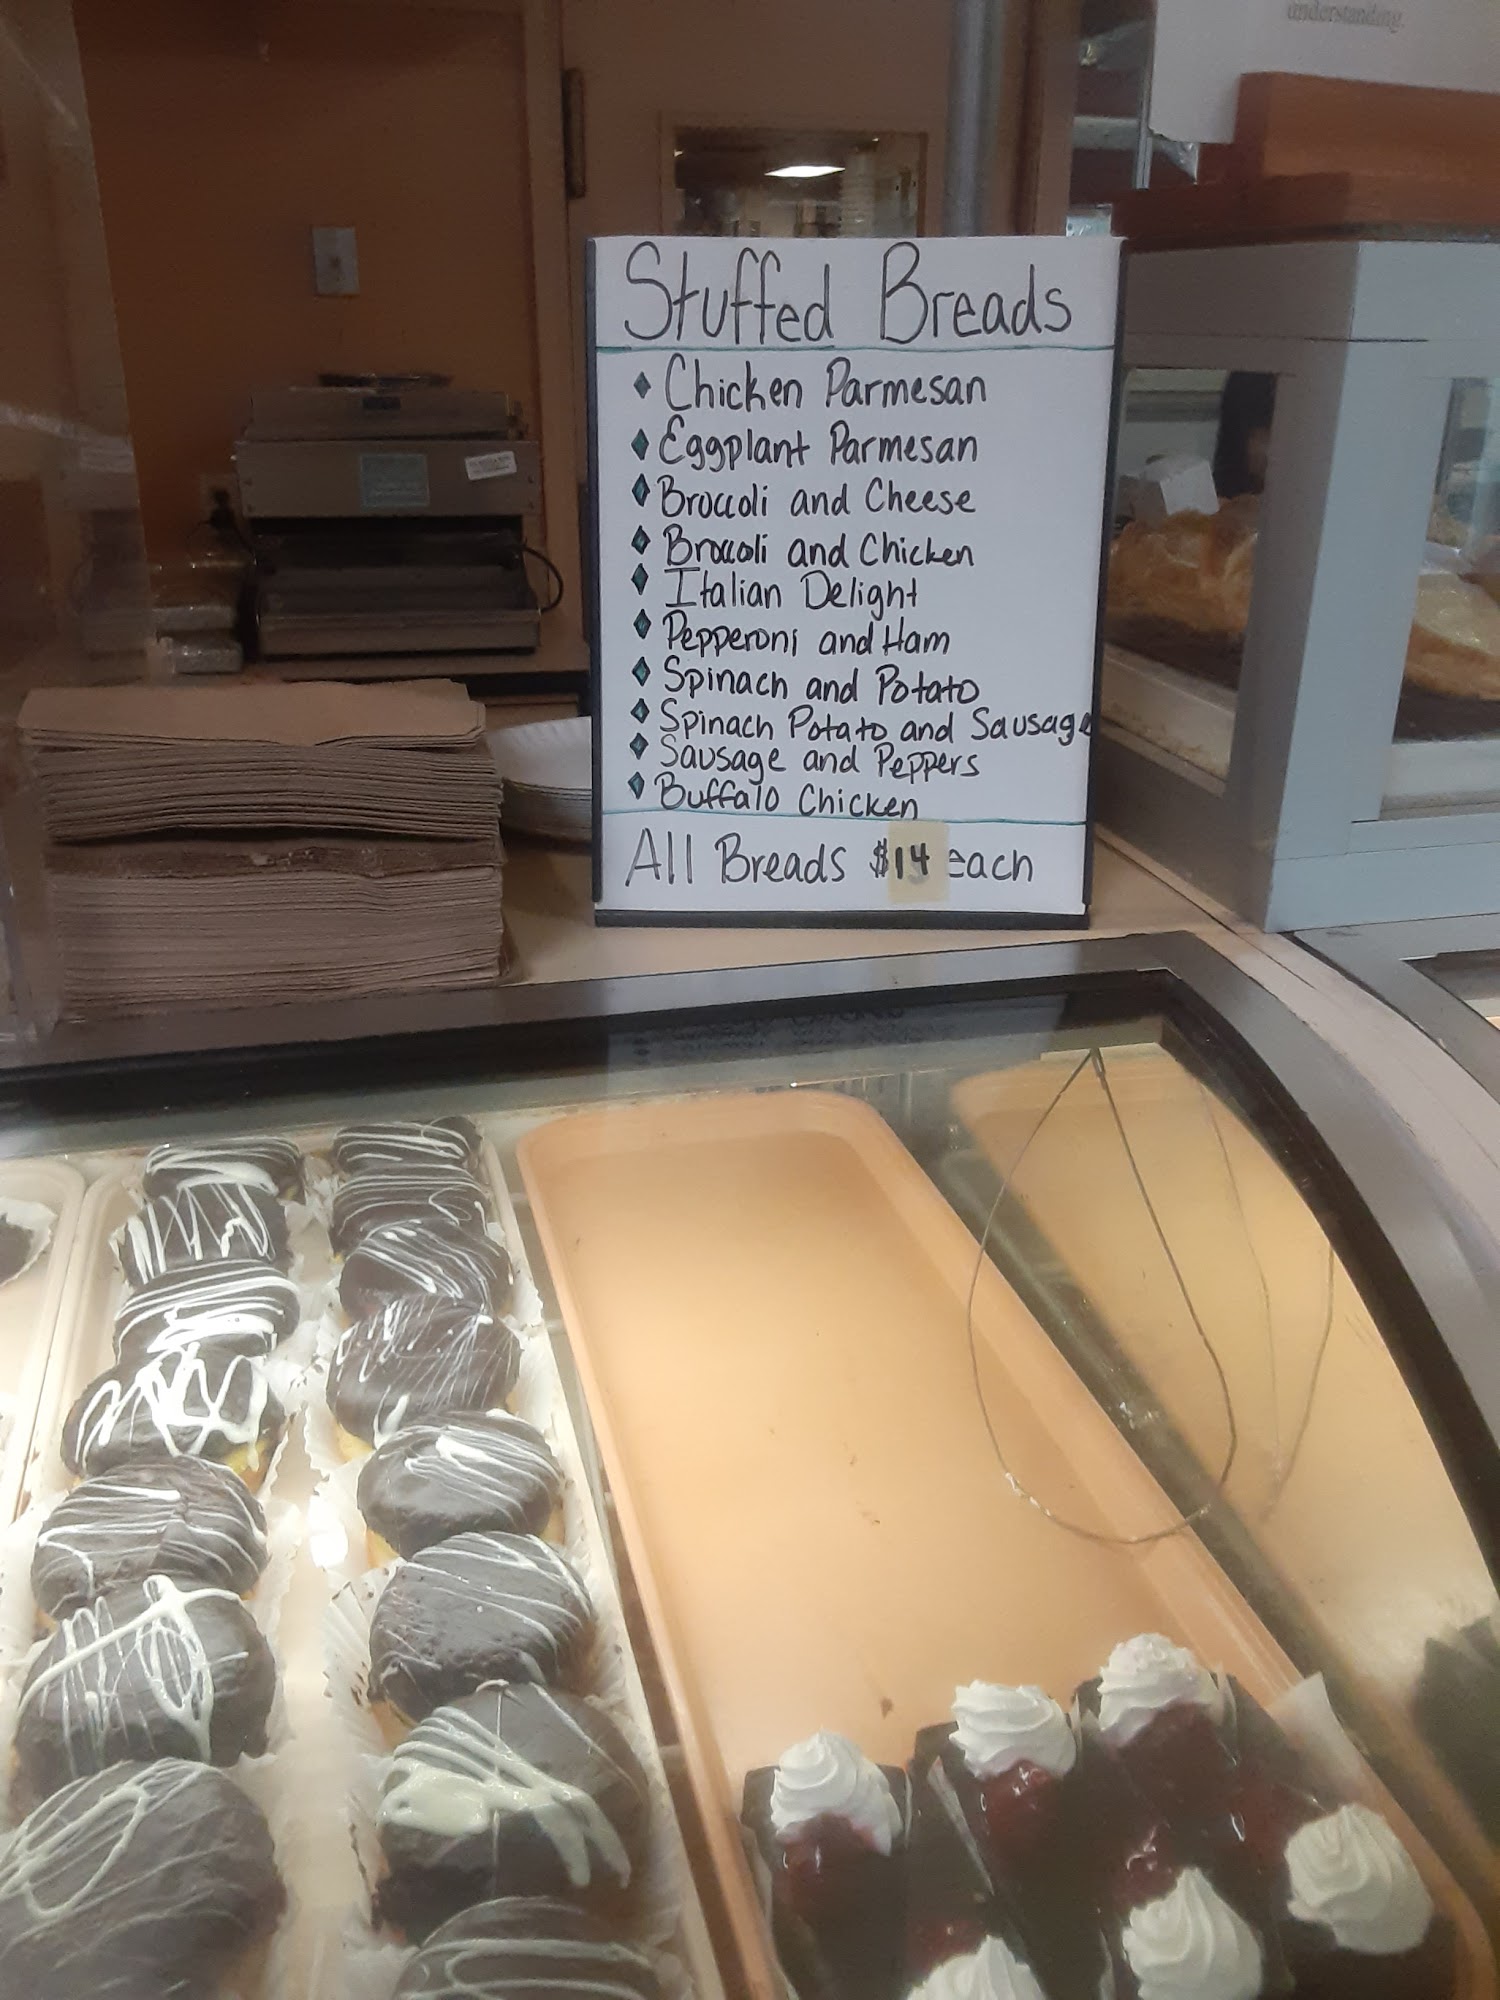 understanding.
Stuffed Breads
Chicken Parmesan
Eggplant Parmesan
Broccoli and Cheese
Broccoli and Chicken
Italian Delight
Pepperoni and Ham
Spinach and Potato
Spinach Potato and Sausage
Sausage and Peppers
Buffalo Chicken
All Breads $14 each